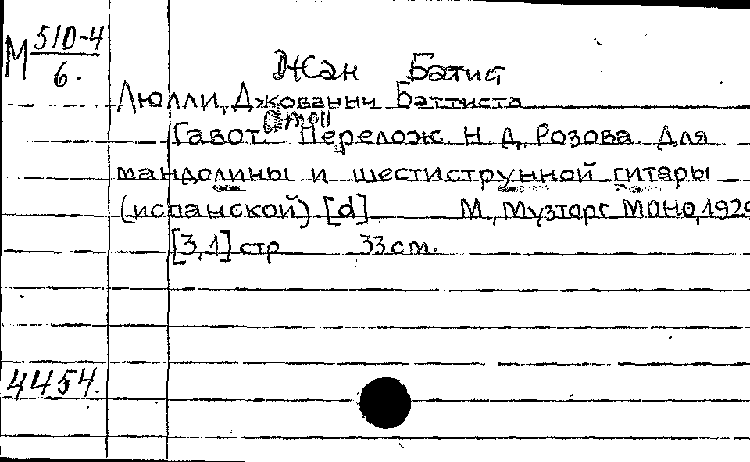 М 510-4
6.
Жан Батист
Люлли, Джованни Баттиста
Гавот. Перелож. Н. Д. Розова для
мандолины и шестиструнной гитары
(испанской) [d] М., Музторг МОНО, 192
[3,1] стр 33 см.
4454.